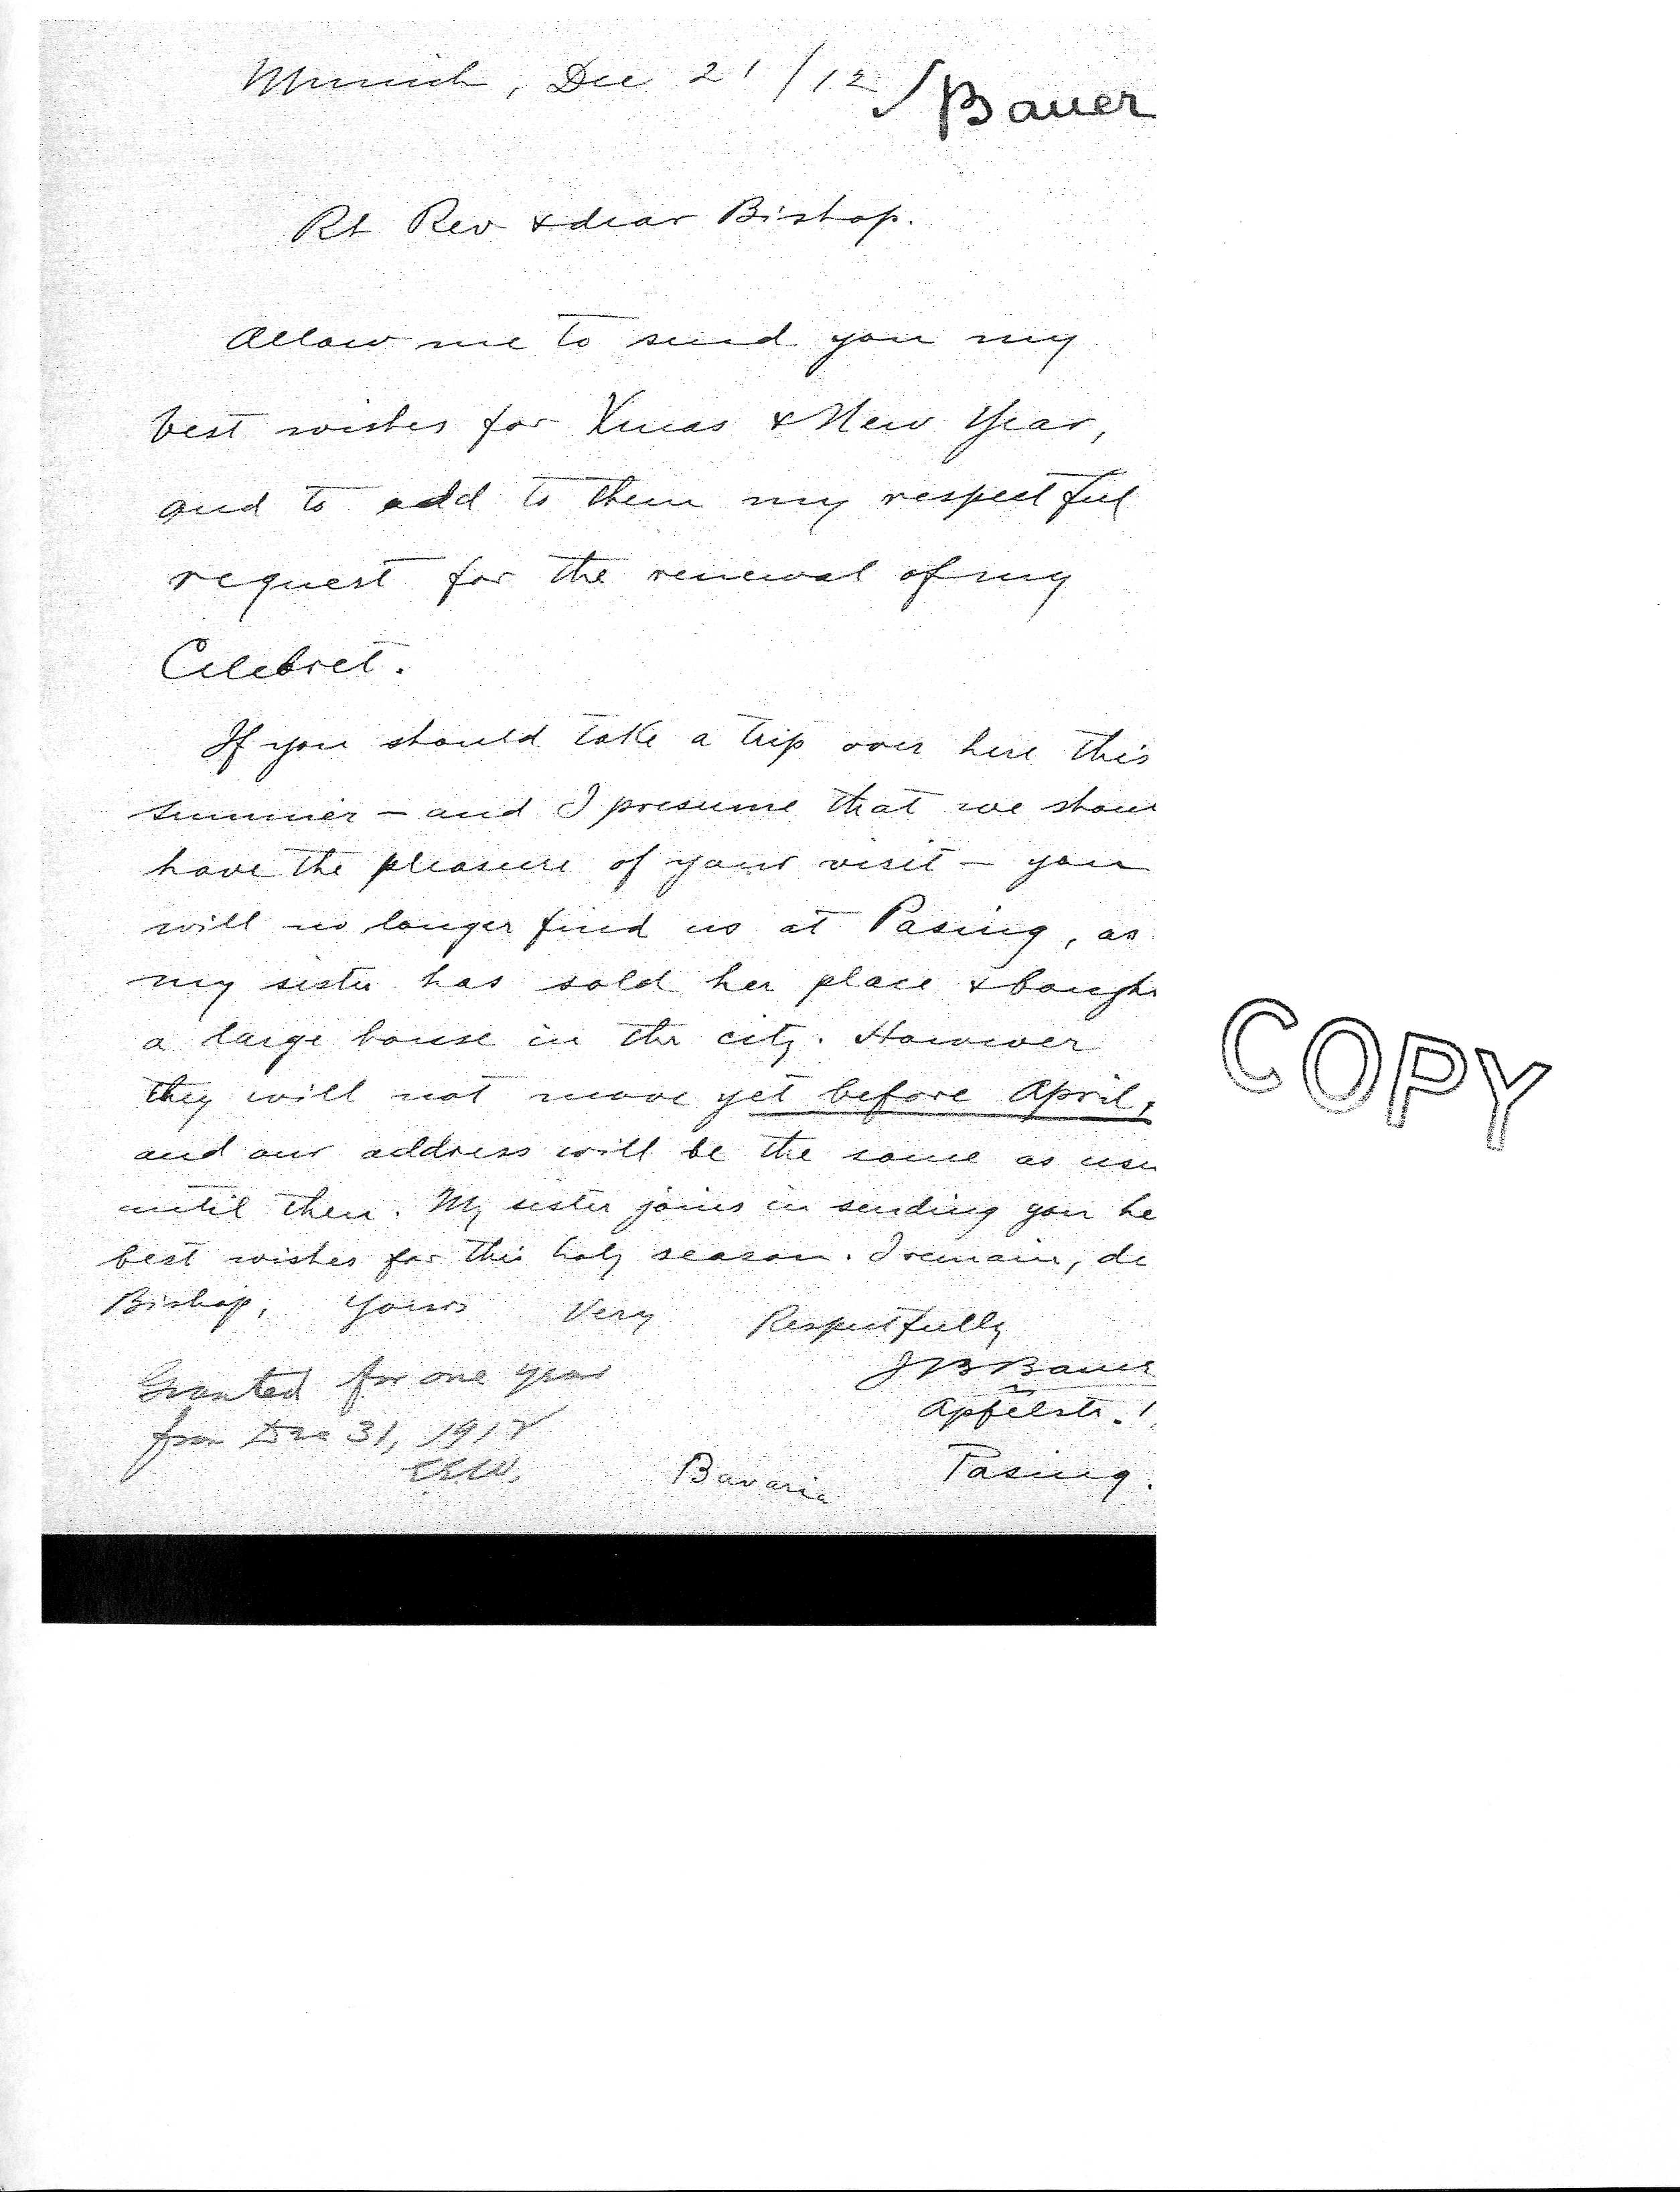 Munich, Dec 21/12
Bauer
Rt Rev & dear Bishop.
Allow me to send you my
best wishes for Xmas & New Year,
and to add to them my respectful
request for the renewal of my
Celebret.
If you should take a trip over here this
summer – and I presume that we shou
have the pleasure of your visit – you
will no longer find us at Pasing, as
my sister has sold her place & bough
a large house in the city. However
they will not move yet before April,
and our address will be the same as usu
until then. My sister joins in sending you he
best wishes for this holy season. I remain, de
Bishop, Yours Very Respectfully
J B Bauer
Apfelstr. 1.
Bavaria Pasing.
Granted for one year
from Dec 31, 1912
COPY